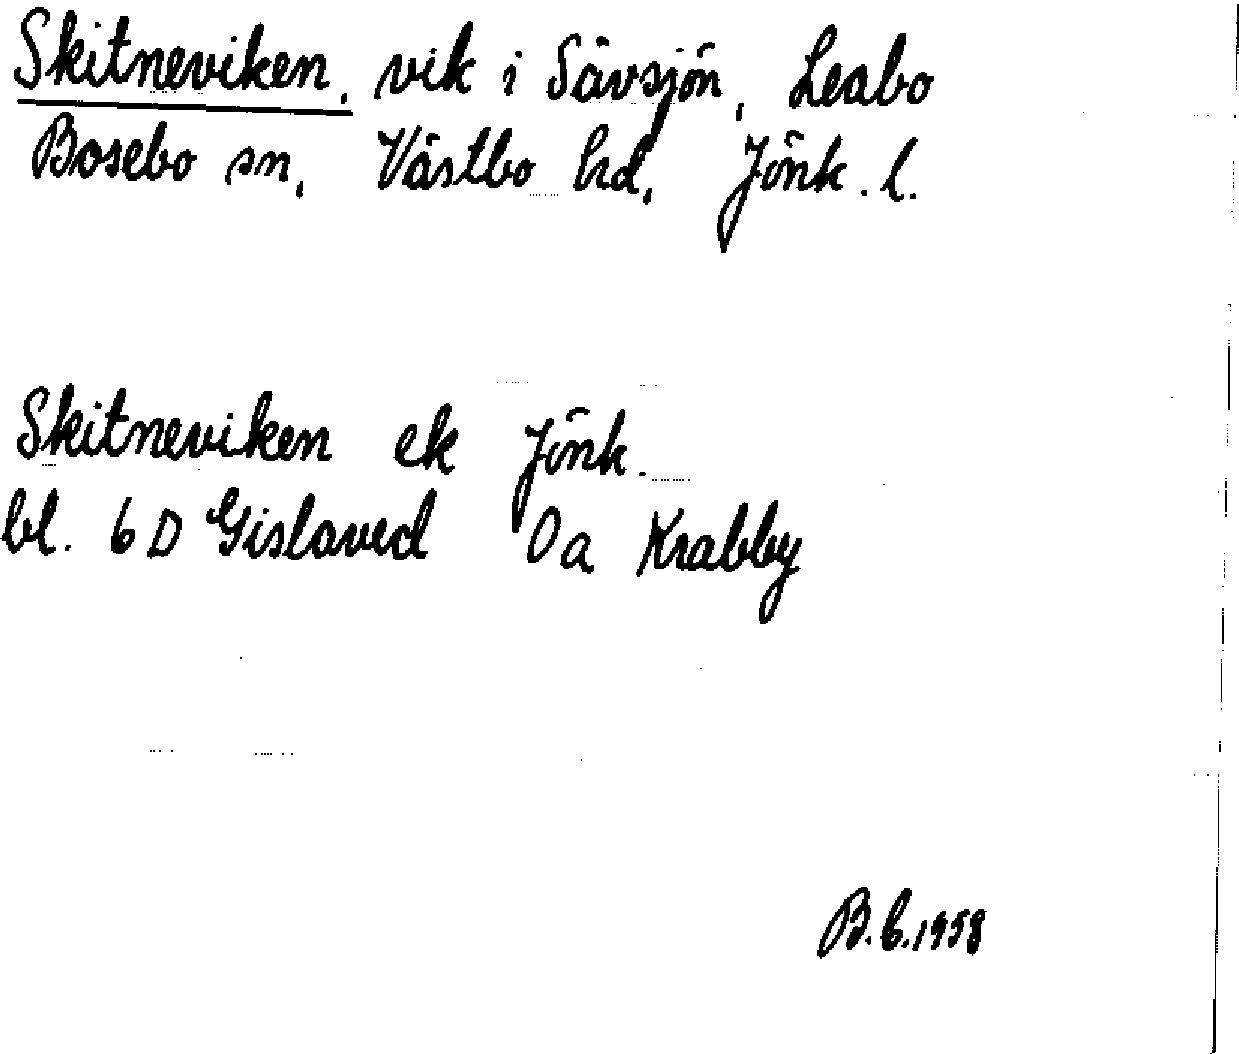 Skitneviken, vik i Sävsjön, Leabo
Bosebo sn, Västbo hd, Jönk. l.
Skitneviken ek Jönk.
bl. 6 D Gislaved 0 a Krabby
B.E.1958